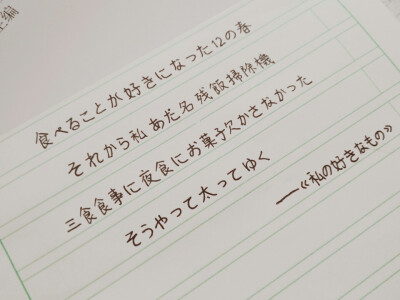 食べることが好きになった12の春
それから私 あだ名 残飯掃除機
三食食事に夜食にお菓子欠かさなかった
そうやって太ってゆく
——《私の好きなもの》